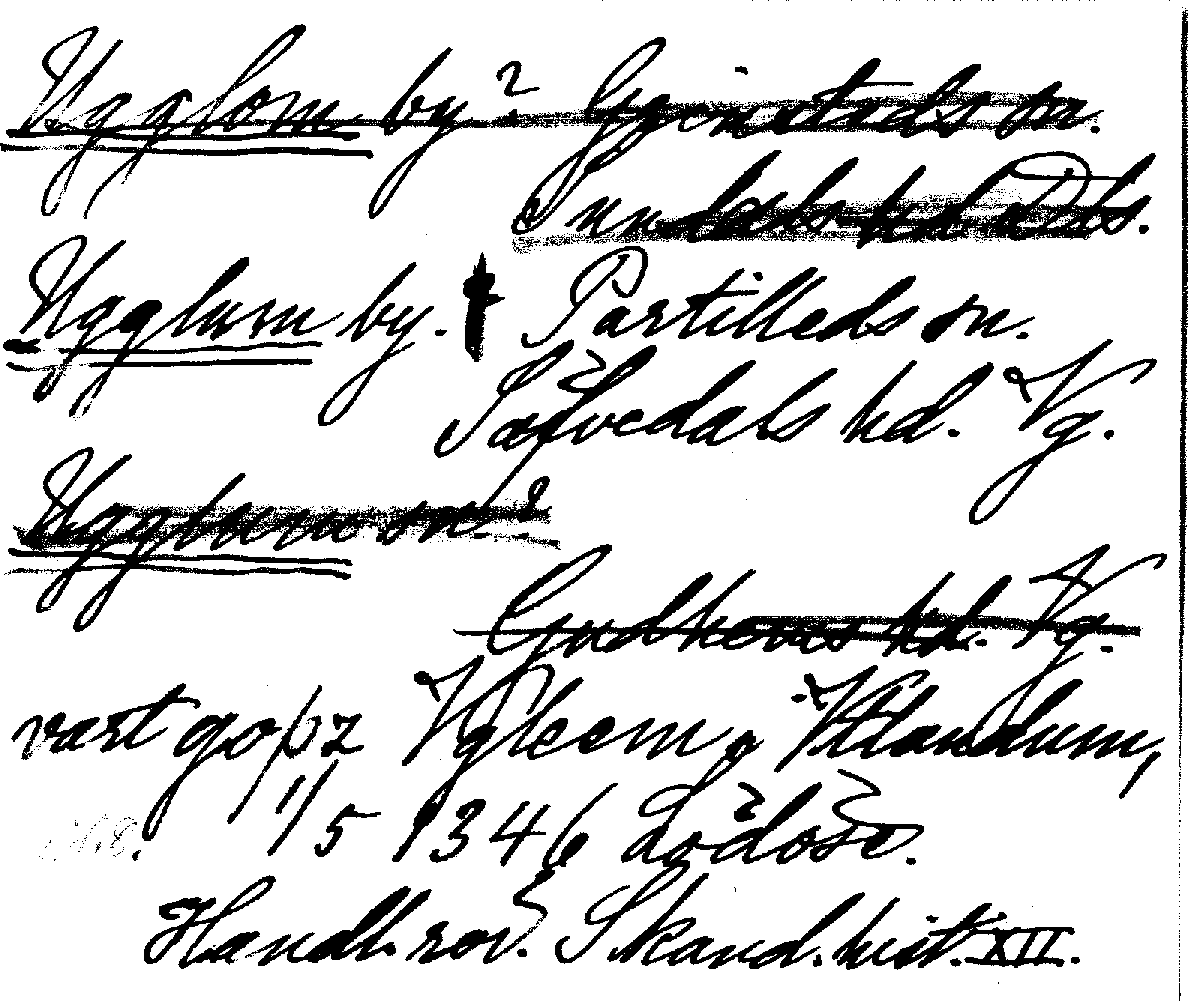 Ugglom by? Gginstads sn.
Sundals hd Dls.
Ugglum by. Partilleds sn.
Säfvedals hd. Vg.
Ugglum sn.?
Gudhems hd. Vg.
vart gopz Vgleem, Vtlandum,
1/5 1346 Lödöse.
Handl. rör. Skand. hist. XII.